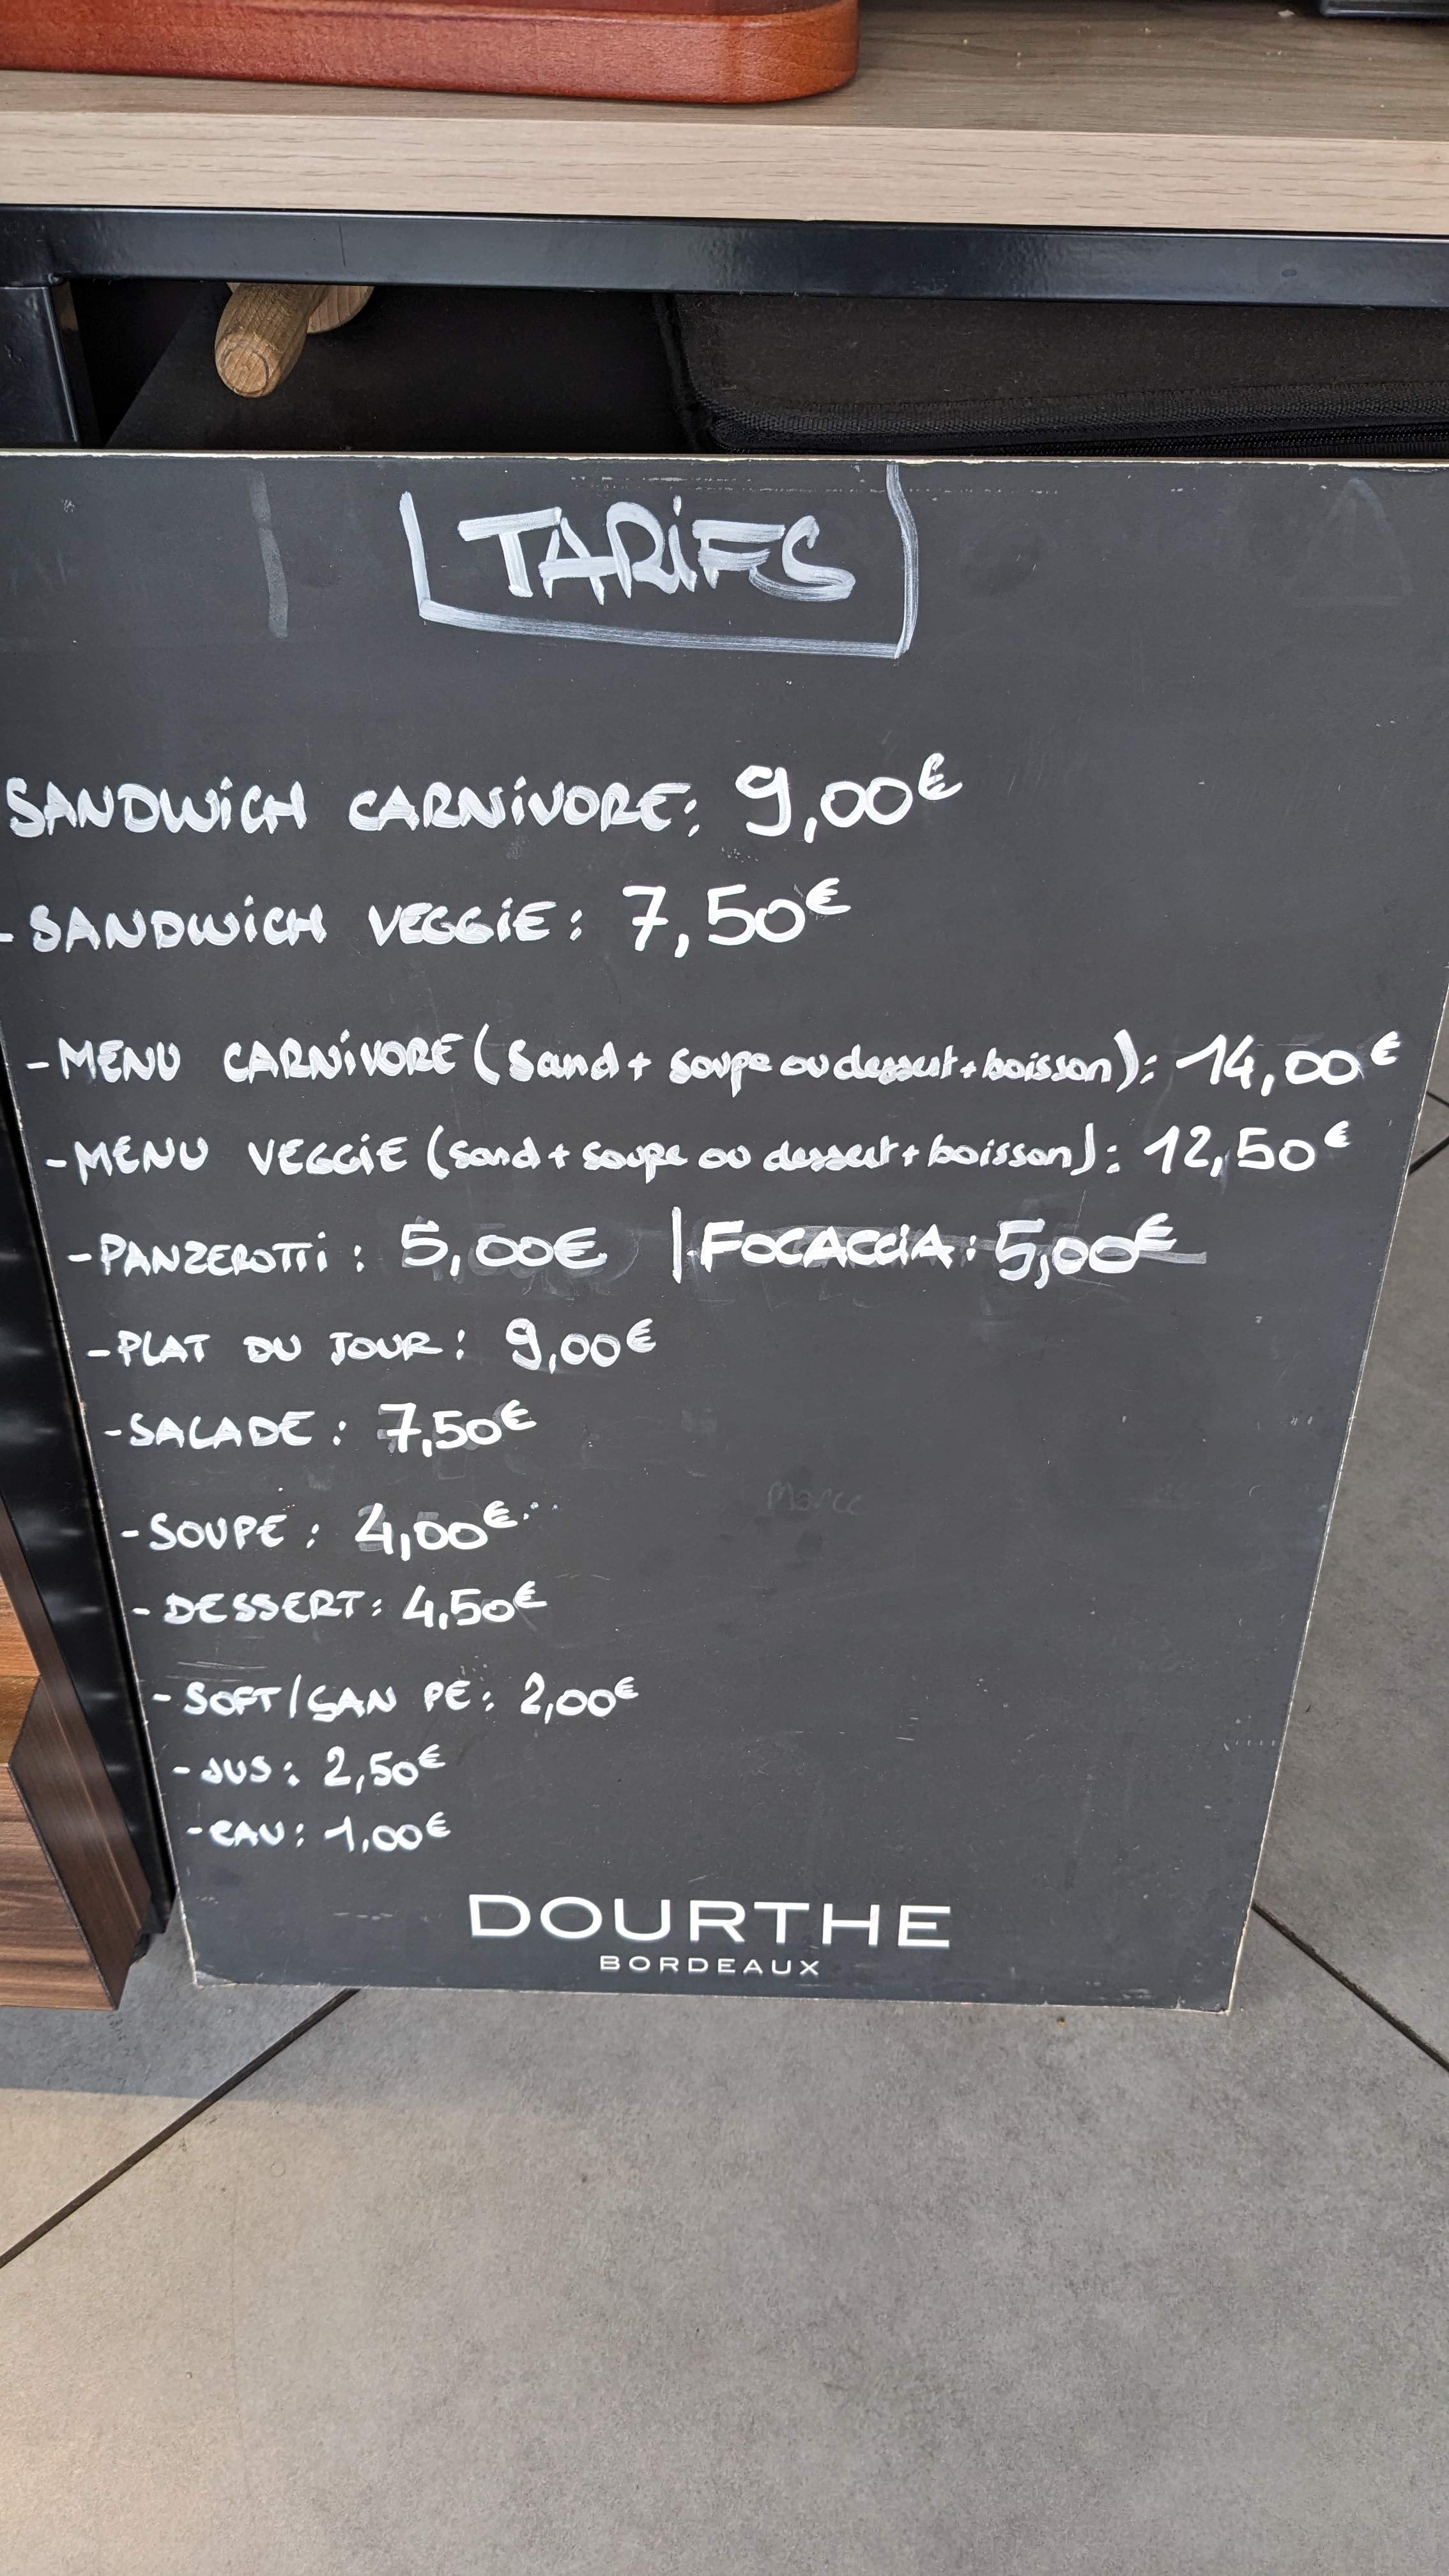 TARiFS
SANDWiCH CARNiVORE: 9,00€
-SANDWiCH VEGGiE: 7,50€
-MENU CARNiVORE (Sand + Soupe ou dessert + boisson): 14,00€
-MENU VEGGiE (Sand + Soupe ou dessert + boisson): 12,50€
-PANZEROTTi: 5,00€ | FOCACCiA: 5,00€
-PLAT DU JOUR: 9,00€
-SALADE: 7,50€
-SOUPE: 4,00€
-DESSERT: 4,50€
-SOFT/SAN PE: 2,00€
-JUS: 2,50€
-EAU: 1,00€
DOURTHE
BORDEAUX